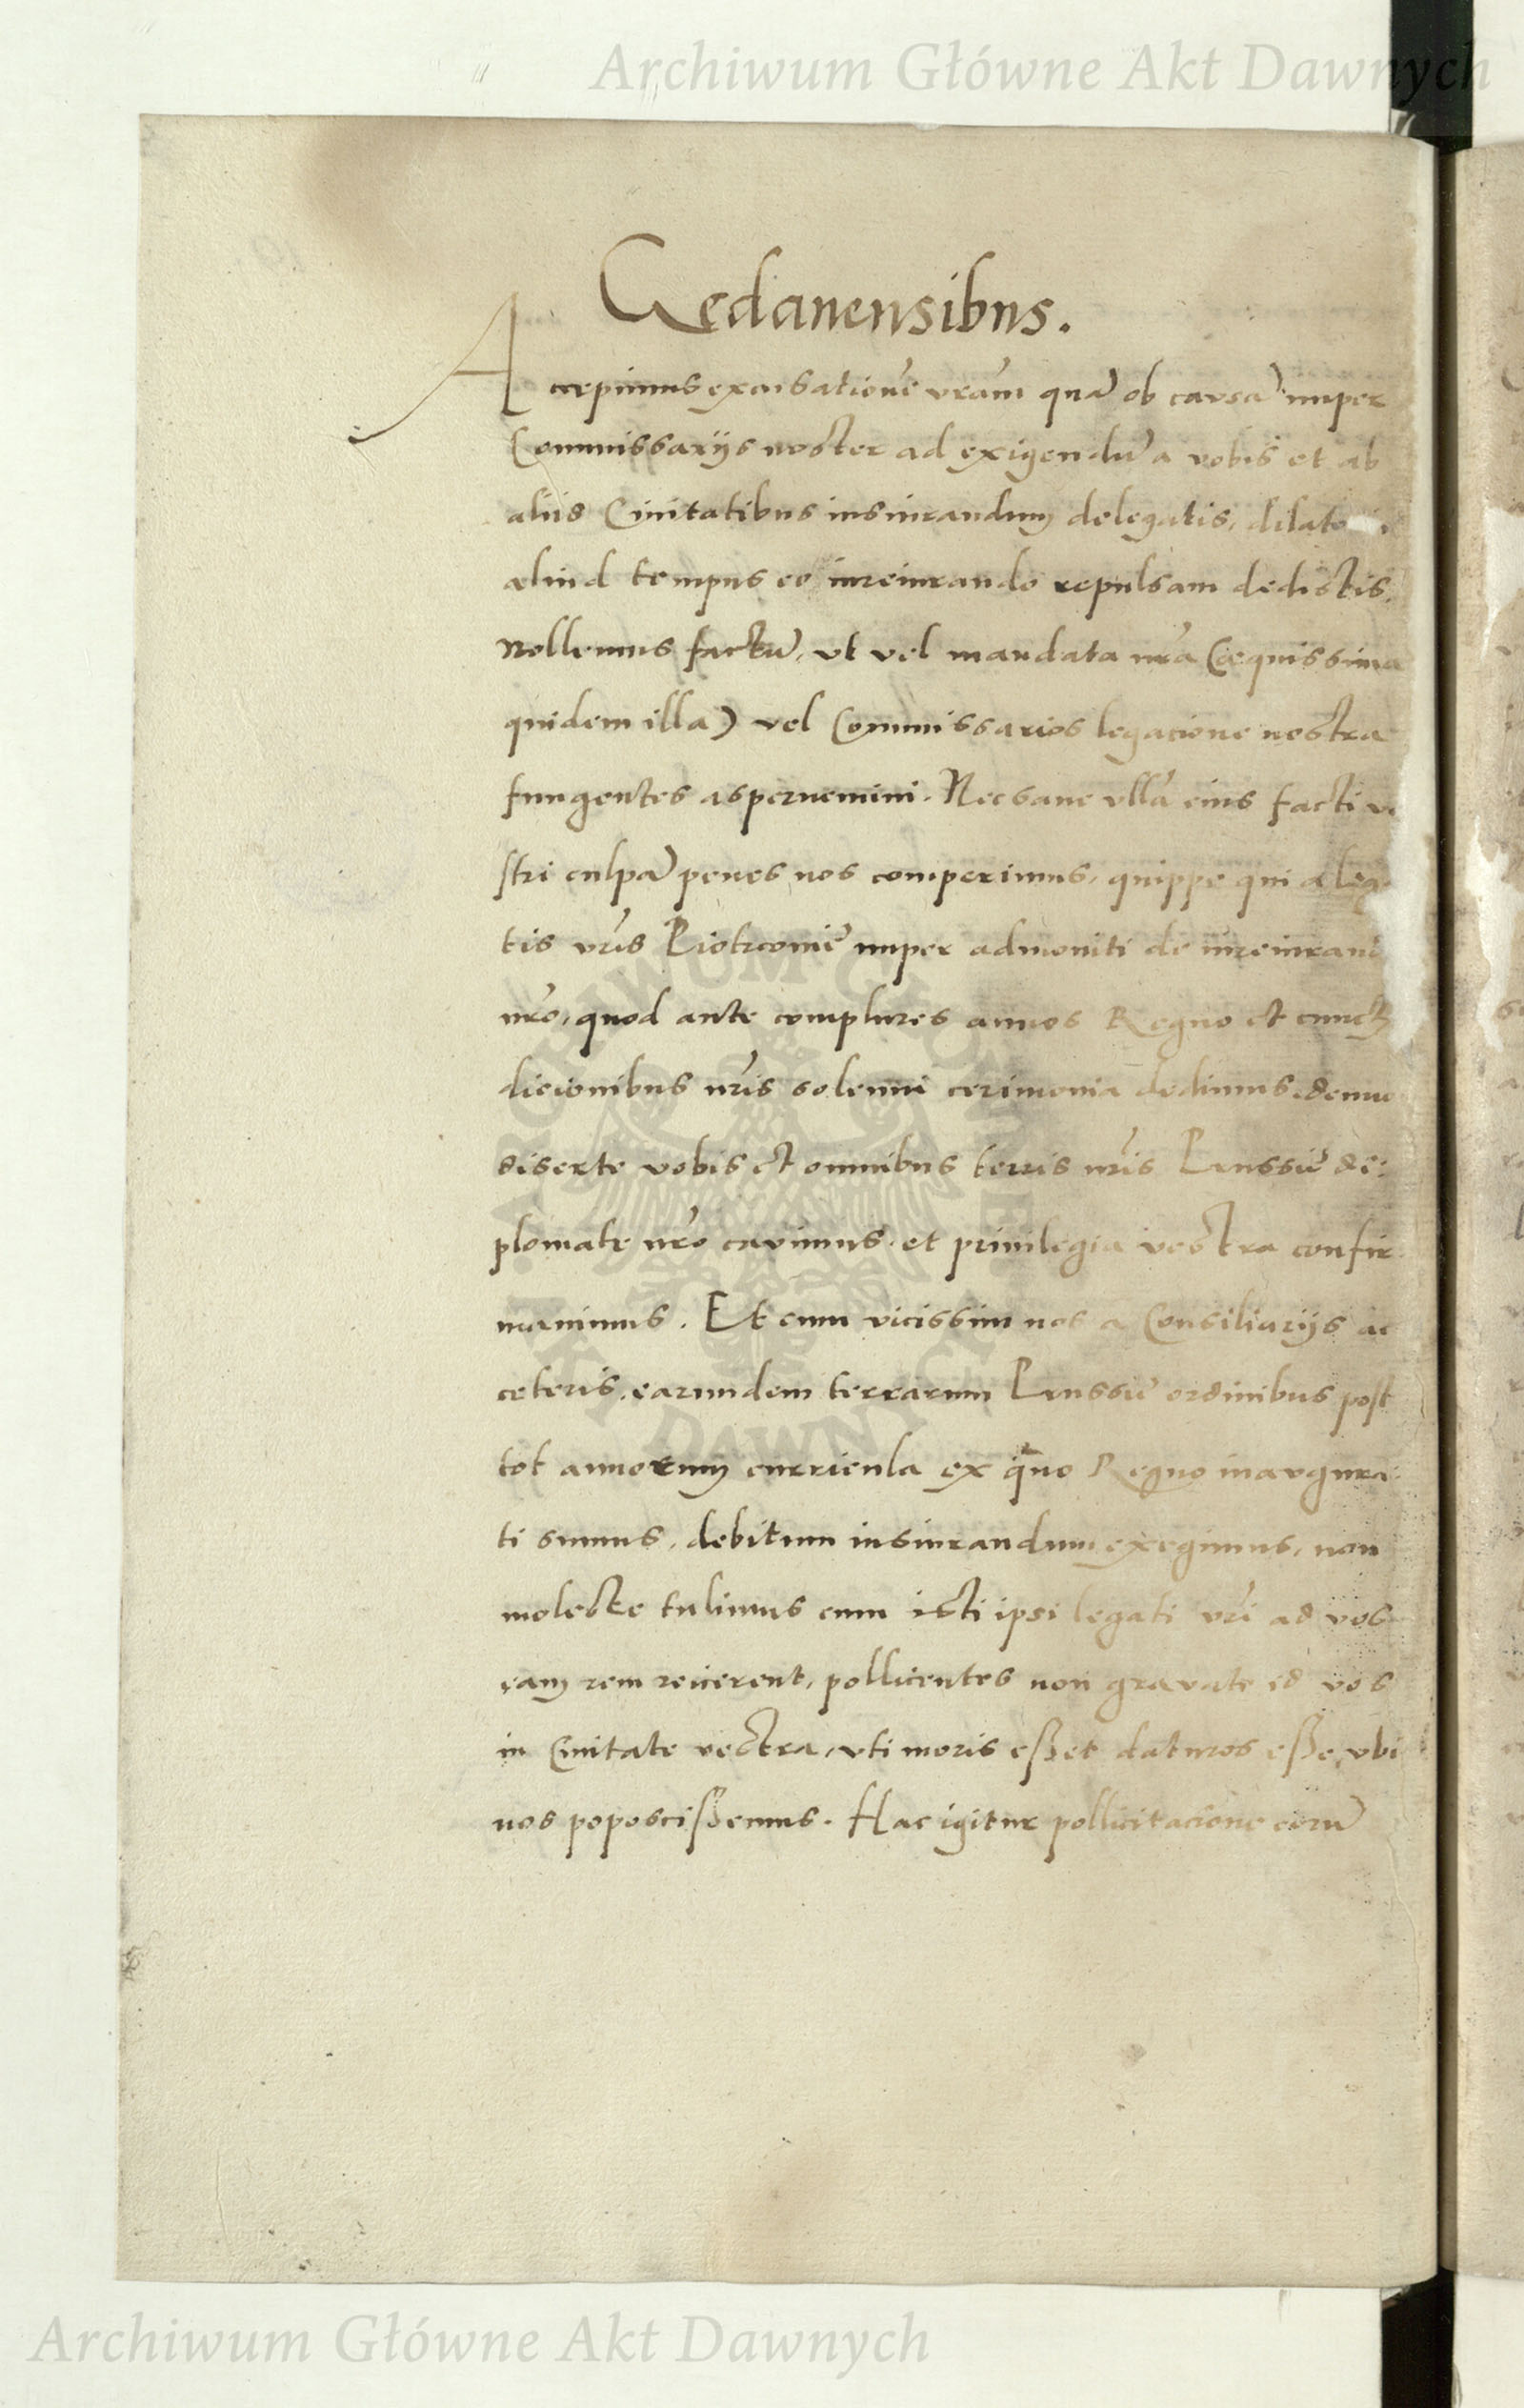 Archiwum Główne Akt Dawnych
Gedanensibus.
Accepimus excusationē vrām quā ob causā nuper
Commissarijs noster ad exigendū a vobis et ab
aliis Ciuitatibus iusiurandum delegatis, dilato
aliud tempus eo iureiurando repulsam dedistis.
Nollemus factū, vt vel mandata nrā (æquissima
quidem illa) vel Commissarios legacione nostra
fungentes aspernemini. Nec sane vllā eius facti ve
stri culpā penes nos comperimus, quippe qui a lega
tis vrīs Piotrconiē nuper admoniti de iureiurand
nrō, quod ante complures annos Regno et cunct
dicionibus nrīs solenni cerimonia dedimus, denuo
diserte vobis et omnibus terris nrīs Prussiē de:
plomate nrō cavimus, et priuilegia vestra confir
mauimus. Et cum vicissim nos a Consiliarijs ac
ceteris earumdem terrarum Prussiē ordinibus post
tot annorum curricula ex quo Regno inaugura:
ti sumus, debitum iusiurandum exegimus, non
moleste tulimus cum isti ipsi legati vrī ad vos
eam rem reicerent, pollicentes non gravate id vos
in Ciuitate vestra, vti moris esset daturos esse, vbi
nos poposcissemus. Hac igitur pollicitacione eorū
ARCHIWUM GŁÓWNE AKT DAWNYCH
Archiwum Główne Akt Dawnych